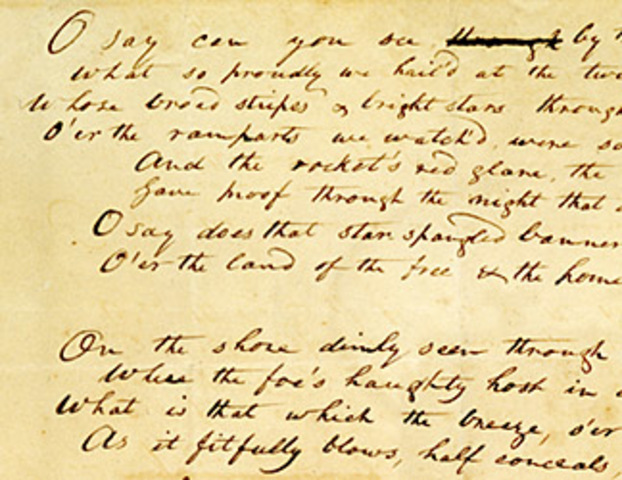 O say can you see by
What so proudly we hail'd at the
Whose broad stripes & bright stars through
O'er the ramparts we watch'd, were
And the rocket's red glare, the
Gave proof through the night that
O say does that star spangled banner
O'er the land of the free & the home
On the shore dimly seen through
Where the foe's haughty host in
What is that which the breeze, o'er
As it fitfully blows, half conceals,